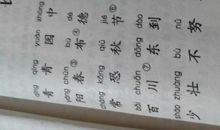 qīng qīng yuán zhōng
青青园中
yáng chūn bù dé
阳春布④德
cháng kǒng qiū jié
常恐秋节⑥
bǎi chuān dōng dào
百川⑦东到
shào zhuàng bù nǔ
少壮不努